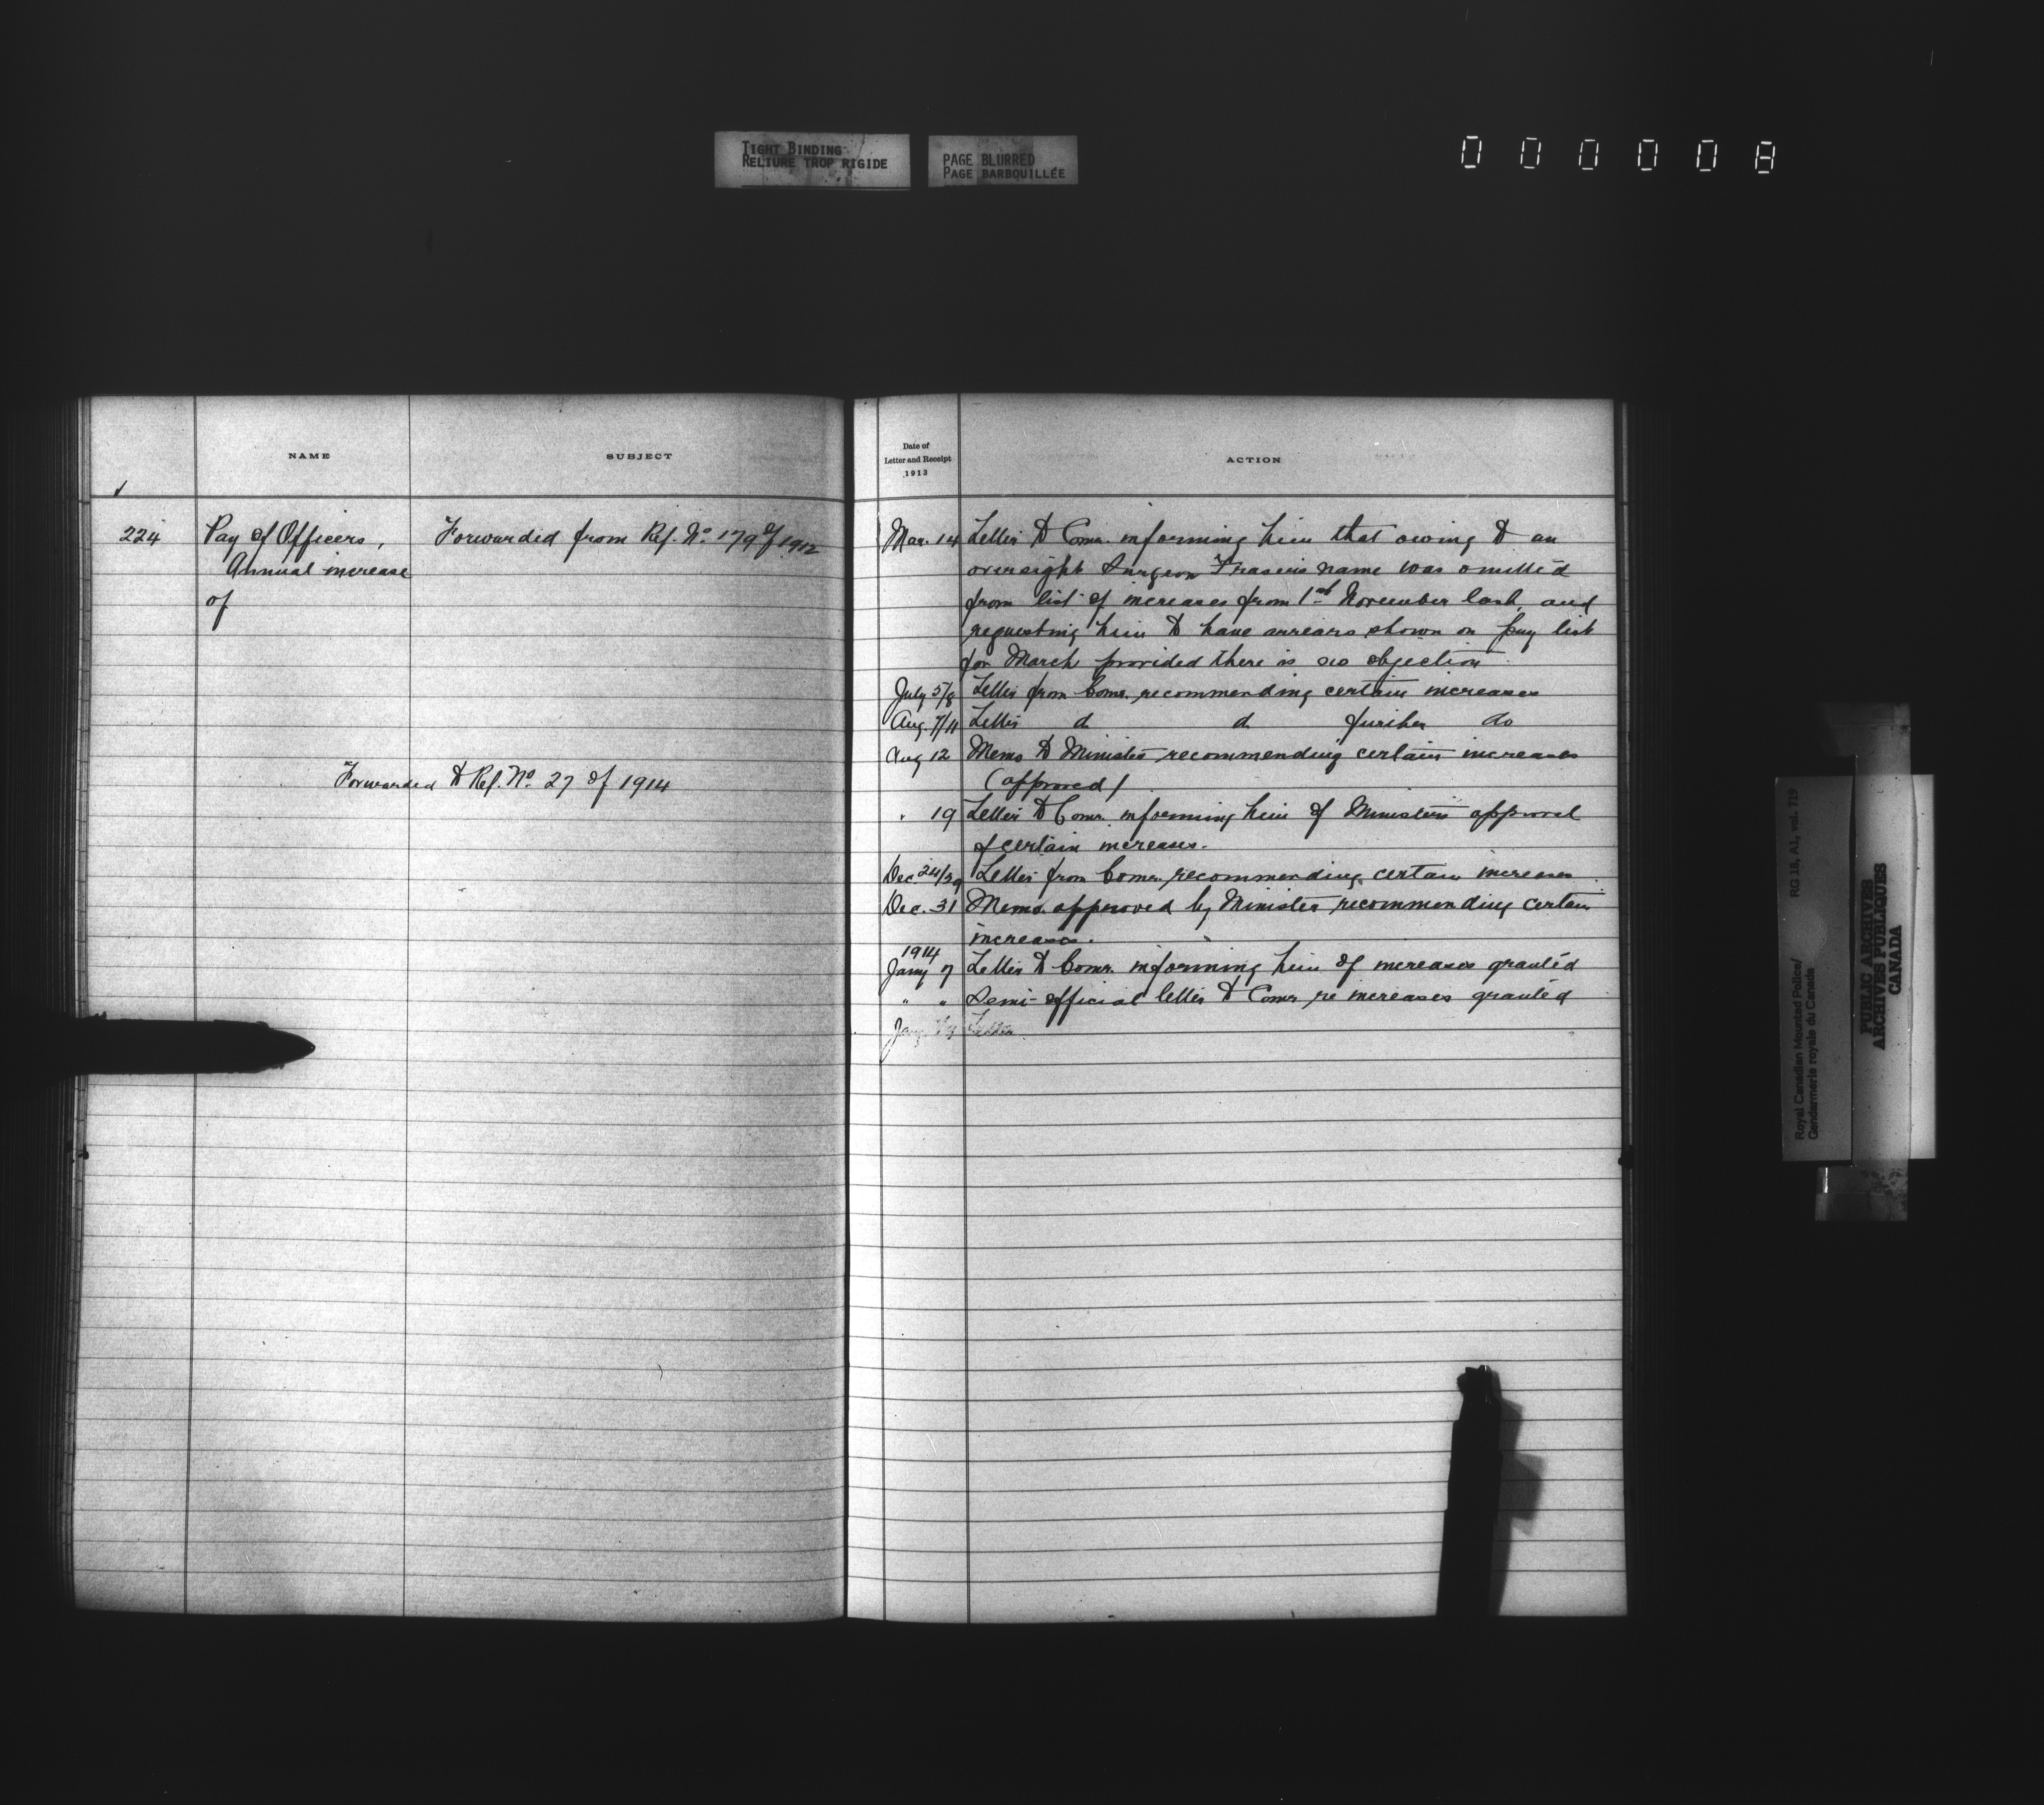 TIGHT BINDING
RELIURE TROP RIGIDE
PAGE BLURRED
PAGE BARBOUILLÉE
000008
NAME
SUBJECT
224
Pay of Officers,
Annual increase
of
Forwarded from Ref. No. 179 of 1912
Forwarded to Ref. No. 27 of 1914
Date of
Letter and Receipt
1913
ACTION
Mar. 14 Letter to Comr. informing him that owing to an
oversight Surgeon Fraser's name was omitted
from list of increases from 1st November last, and
requesting him to have arrears shown on pay list
for March provided there is no objection.
July 5/8 Letter from Comr. recommending certain increases
Aug. 7/11 Letter d d further do
Aug 12 Memo to Minister recommending certain increases
(approved)
" 19 Letter to Comr. informing him of Ministers approval
of certain increases.
Dec. 24/29 Letter from Comr. recommending certain increases
Dec. 31 Memo. approved by Minister recommending certain
increases.
1914
Jany 7 Letter to Comr. informing him of increases granted
" " Semi-official letter to Comr re increases granted
Jany Letter
Royal Canadian Mounted Police/
Gendarmerie royale du Canada
RG 18, A1, vol. 719
PUBLIC ARCHIVES
ARCHIVES PUBLIQUES
CANADA